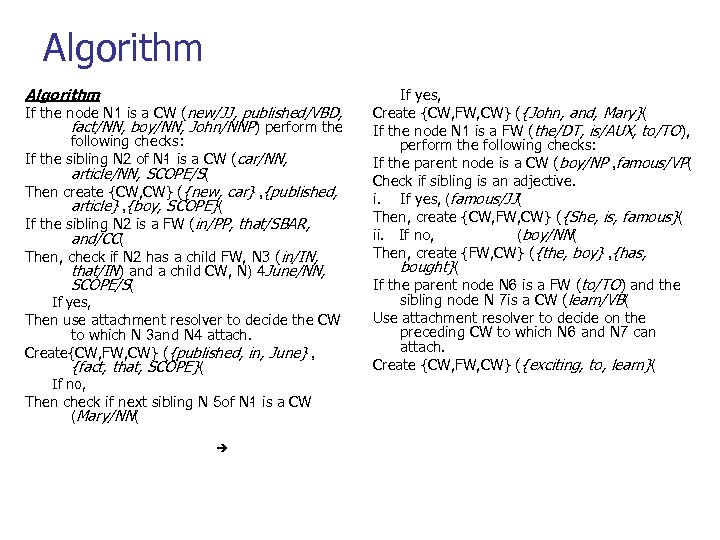 Algorithm
Algorithm
If the node N1 is a CW (new/JJ, published/VBD,
fact/NN, boy/NN, John/NNP) perform the
following checks:
If the sibling N2 of N1 is a CW (car/NN,
article/NN, SCOPE/S(
Then create {CW,CW} ({new, car} ,{published,
article} ,{boy, SCOPE}(
If the sibling N2 is a FW (in/PP, that/SBAR,
and/CC(
Then, check if N2 has a child FW, N3 (in/IN,
that/IN) and a child CW, N) 4June/NN,
SCOPE/S(
If yes,
Then use attachment resolver to decide the CW
to which N 3and N4 attach.
Create{CW,FW,CW} ({published, in, June} ,
{fact, that, SCOPE}(
If no,
Then check if next sibling N 5of N1 is a CW
(Mary/NN(
➔
If yes,
Create {CW,FW,CW} ({John, and, Mary}(
If the node N1 is a FW (the/DT, is/AUX, to/TO),
perform the following checks:
If the parent node is a CW (boy/NP ,famous/VP(
Check if sibling is an adjective.
i. If yes, (famous/JJ(
Then, create {CW,FW,CW} ({She, is, famous}(
ii. If no, (boy/NN(
Then, create {FW,CW} ({the, boy} ,{has,
bought}(
If the parent node N6 is a FW (to/TO) and the
sibling node N 7is a CW (learn/VB(
Use attachment resolver to decide on the
preceding CW to which N6 and N7 can
attach.
Create {CW,FW,CW} ({exciting, to, learn}(